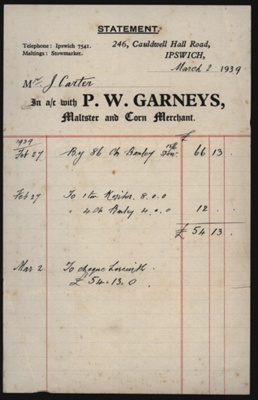 STATEMENT.
Telephone: Ipswich 7541.
Maltings: Stowmarket.
246, Cauldwell Hall Road,
IPSWICH,
March 2 1939
Mr J. Carter
In a/c with P. W. GARNEYS,
Maltster and Corn Merchant.
£
1939
Feb 27 By 86 Barley 66 13 .
Feb 27 To 1 8.0.0
" 4 Barley 4.0.0 12 .
£ 54 13
Mar 2 To cheque herewith
£54.13.0